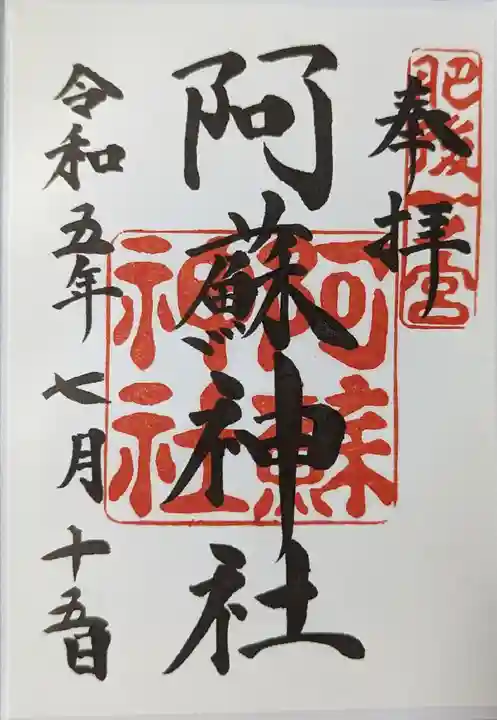 奉拝
肥後一宮
阿蘇神社
阿蘇神社
令和五年七月十五日